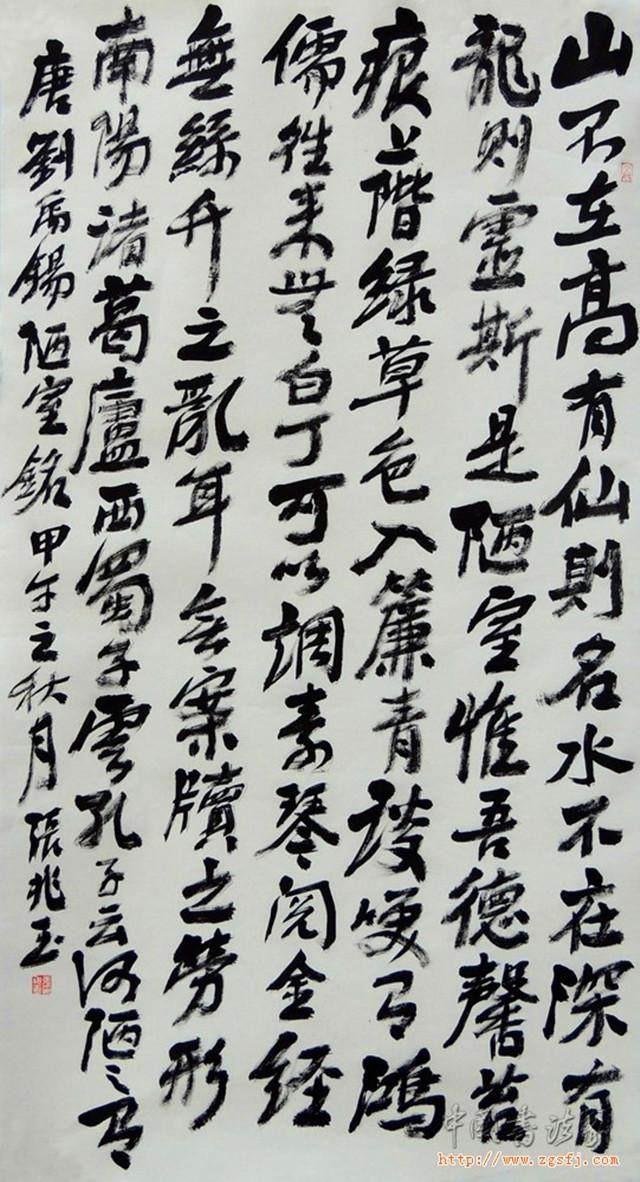 山不在高有仙則名水不在深有
龍則靈斯是陋室惟吾德馨苔
痕上階緑草色入簾青談笑有鴻
儒往來無白丁可以調素琴閲金經
無絲竹之亂耳無案牘之勞形
南陽諸葛廬西蜀子雲亭孔子云何陋之有
唐劉禹錫陋室銘甲午之秋月張兆玉
中國書法家
http://www.zgsfj.com